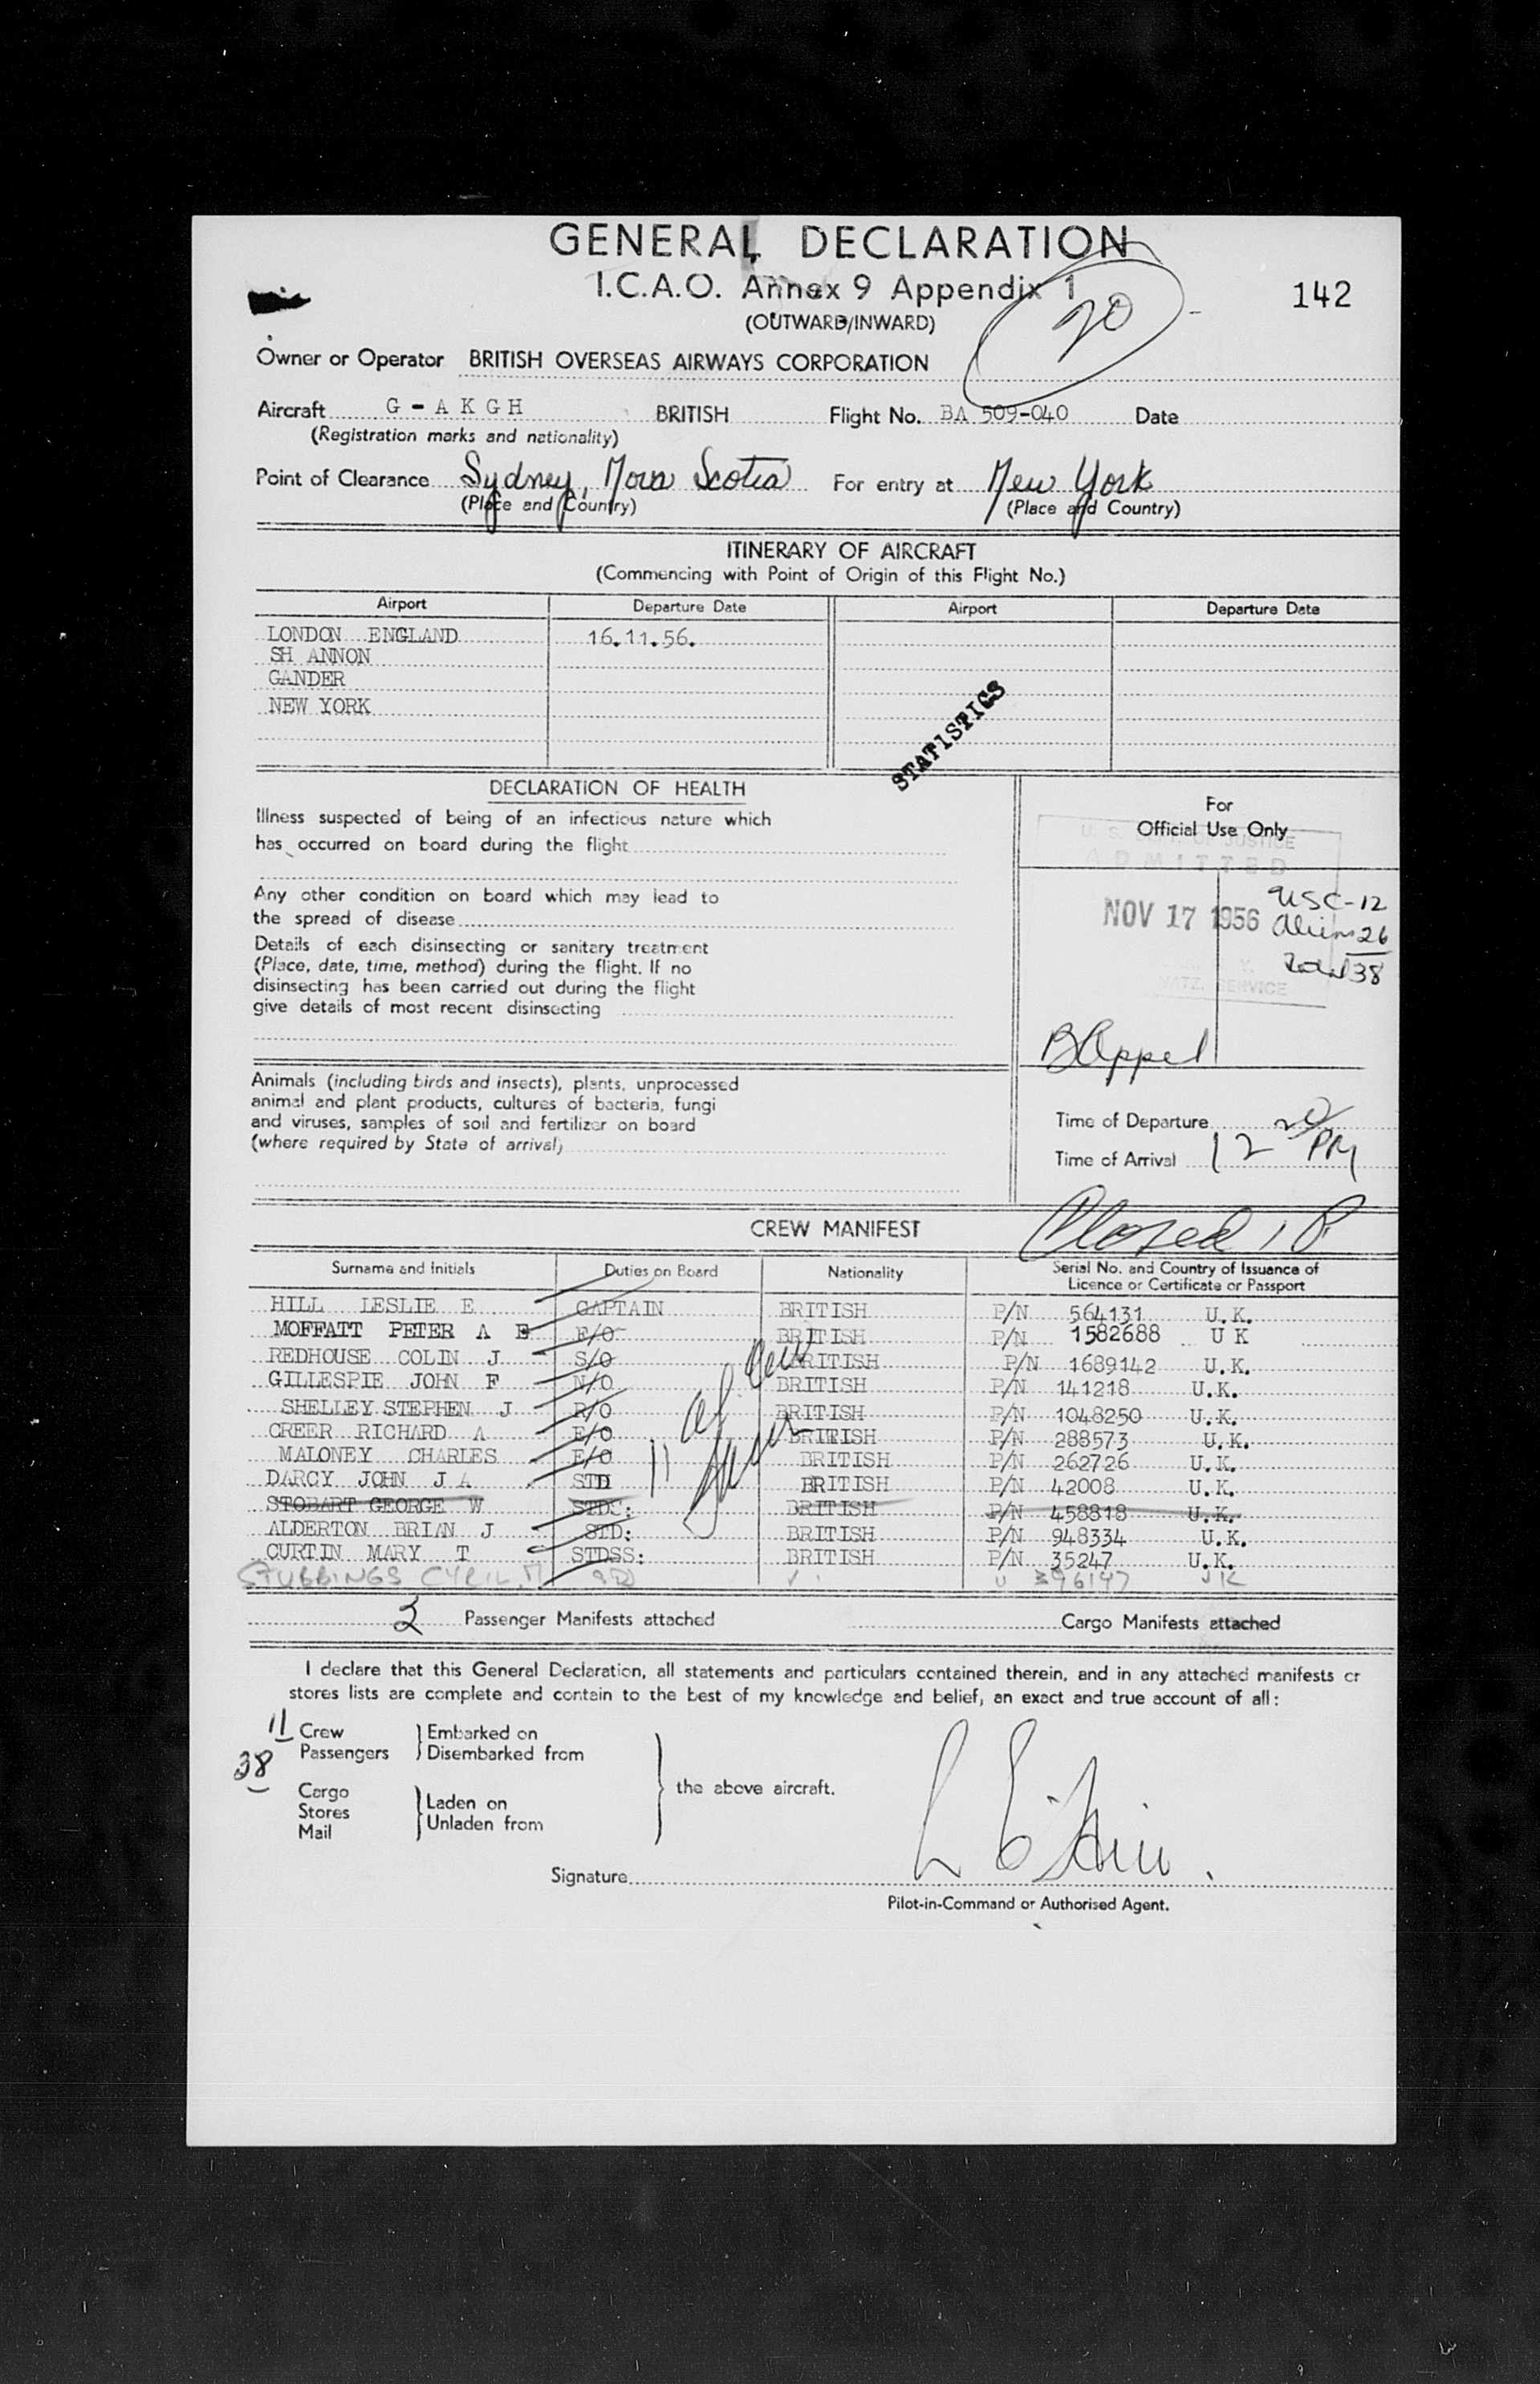 GENERAL DECLARATION
I.C.A.O. Annex 9 Appendix 1
142
20
(OUTWARD/INWARD)
Owner or Operator BRITISH OVERSEAS AIRWAYS CORPORATION
Aircraft G - A K G H BRITISH Flight No. BA 509-040 Date
(Registration marks and nationality)
Point of Clearance Sydney, Nova Scotia For entry at New York
(Place and Country) (Place and Country)
ITINERARY OF AIRCRAFT
(Commencing with Point of Origin of this Flight No.)
Airport Departure Date Airport Departure Date
LONDON ENGLAND 16.11.56.
SH ANNON
GANDER
NEW YORK
STATISTICS
DECLARATION OF HEALTH
Illness suspected of being of an infectious nature which
has occurred on board during the flight
Any other condition on board which may lead to
the spread of disease
Details of each disinsecting or sanitary treatment
(Place, date, time, method) during the flight. If no
disinsecting has been carried out during the flight
give details of most recent disinsecting
Animals (including birds and insects), plants, unprocessed
animal and plant products, cultures of bacteria, fungi
and viruses, samples of soil and fertilizer on board
(where required by State of arrival)
For
Official Use Only
ADMITTED
NOV 17 1956
USC-12
Aliens 26
Total 38
SERVICE
B Appel
Time of Departure
Time of Arrival 12 20 PM
CREW MANIFEST
Closed
Surname and Initials Duties on Board Nationality Serial No. and Country of Issuance of
Licence or Certificate or Passport
HILL LESLIE E CAPTAIN BRITISH P/N 564131 U.K.
MOFFATT PETER A E F/O BRITISH P/N 1582688 U K
REDHOUSE COLIN J S/O BRITISH P/N 1689142 U.K.
GILLESPIE JOHN F N/O BRITISH P/N 141218 U.K.
SHELLEY STEPHEN J R/O BRITISH P/N 1048250 U.K.
CREER RICHARD A E/O BRITISH P/N 288573 U.K.
MALONEY CHARLES E/O BRITISH P/N 262726 U.K.
DARCY JOHN J A STD BRITISH P/N 42008 U.K.
STOBART GEORGE W STDS: BRITISH P/N 458818 U.K.
ALDERTON BRIAN J STD: BRITISH P/N 948334 U.K.
CURTIN MARY T STDSS: BRITISH P/N 35247 U.K.
STUBBINGS CYRIL 396147 UK
11
3 Passenger Manifests attached Cargo Manifests attached
I declare that this General Declaration, all statements and particulars contained therein, and in any attached manifests or
stores lists are complete and contain to the best of my knowledge and belief, an exact and true account of all:
11 Crew Embarked on
38 Passengers Disembarked from
the above aircraft.
Cargo Laden on
Stores Unladen from
Mail
Signature
Pilot-in-Command or Authorised Agent.